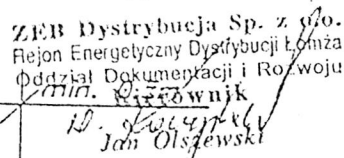 ZEB Dystrybucja Sp. z o.o.
Rejon Energetyczny Dystrybucji Łomża
Oddział Dokumentacji i Rozwoju
Kierownik
Jan Olszewski